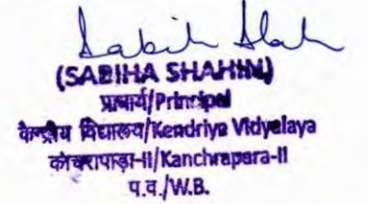 Sabih Shah
(SABIHA SHAHIN)
प्राचार्य/Principal
केन्द्रीय विद्यालय/Kendriya Vidyalaya
कांचरापाड़ा-II/Kanchrapara-II
प.व./W.B.